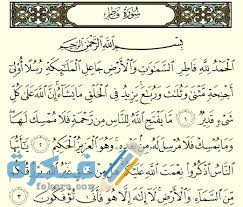 سُورَةُ فَاطِرٍ
بِسْمِ اللَّهِ الرَّحْمَٰنِ الرَّحِيمِ
الْحَمْدُ لِلَّهِ فَاطِرِ السَّمَٰوَٰتِ وَالْأَرْضِ جَاعِلِ الْمَلَٰٓئِكَةِ رُسُلًا أُو۟لِىٓ
أَجْنِحَةٍ مَّثْنَىٰ وَثُلَٰثَ وَرُبَٰعَ يَزِيدُ فِى الْخَلْقِ مَا يَشَآءُ إِنَّ اللَّهَ عَلَىٰ كُلِّ
شَىْءٍ قَدِيرٌ ١ مَّا يَفْتَحِ اللَّهُ لِلنَّاسِ مِن رَّحْمَةٍ فَلَا مُمْسِكَ لَهَا
وَمَا يُمْسِكْ فَلَا مُرْسِلَ لَهُۥ مِنۢ بَعْدِهِۦ وَهُوَ الْعَزِيزُ الْحَكِيمُ ٢ يَٰٓأَيُّهَا
النَّاسُ اذْكُرُوا۟ نِعْمَتَ اللَّهِ عَلَيْكُمْ هَلْ مِنْ خَٰلِقٍ غَيْرُ اللَّهِ يَرْزُقُكُم
مِّنَ السَّمَآءِ وَالْأَرْضِ لَآ إِلَٰهَ إِلَّا هُوَ فَأَنَّىٰ تُؤْفَكُونَ ٣
فكرة